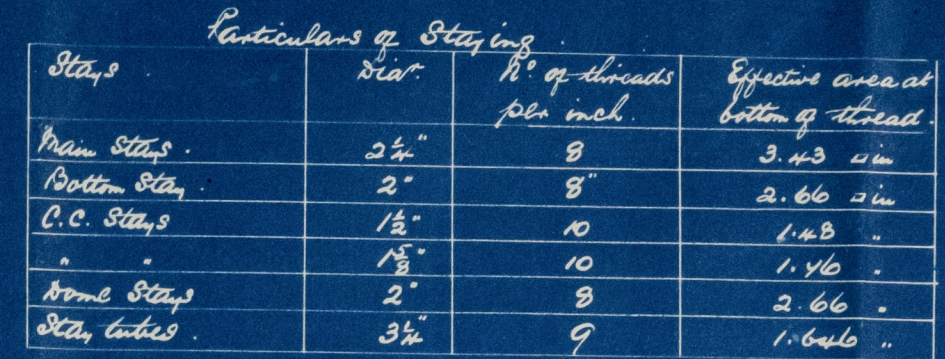 Particulars of Staying.
Stays . Diar. No. of threads per inch. Effective area at bottom of thread.
Main Stays . 2¼" 8 3.43 □ in
Bottom Stay . 2" 8" 2.66 □ in
C.C. Stays 1½" 10 1.48 "
" " 1⅝" 10 1.76 "
Dome Stays 2" 8 2.66 "
Stay tubes . 3¼" 9 1.646 "